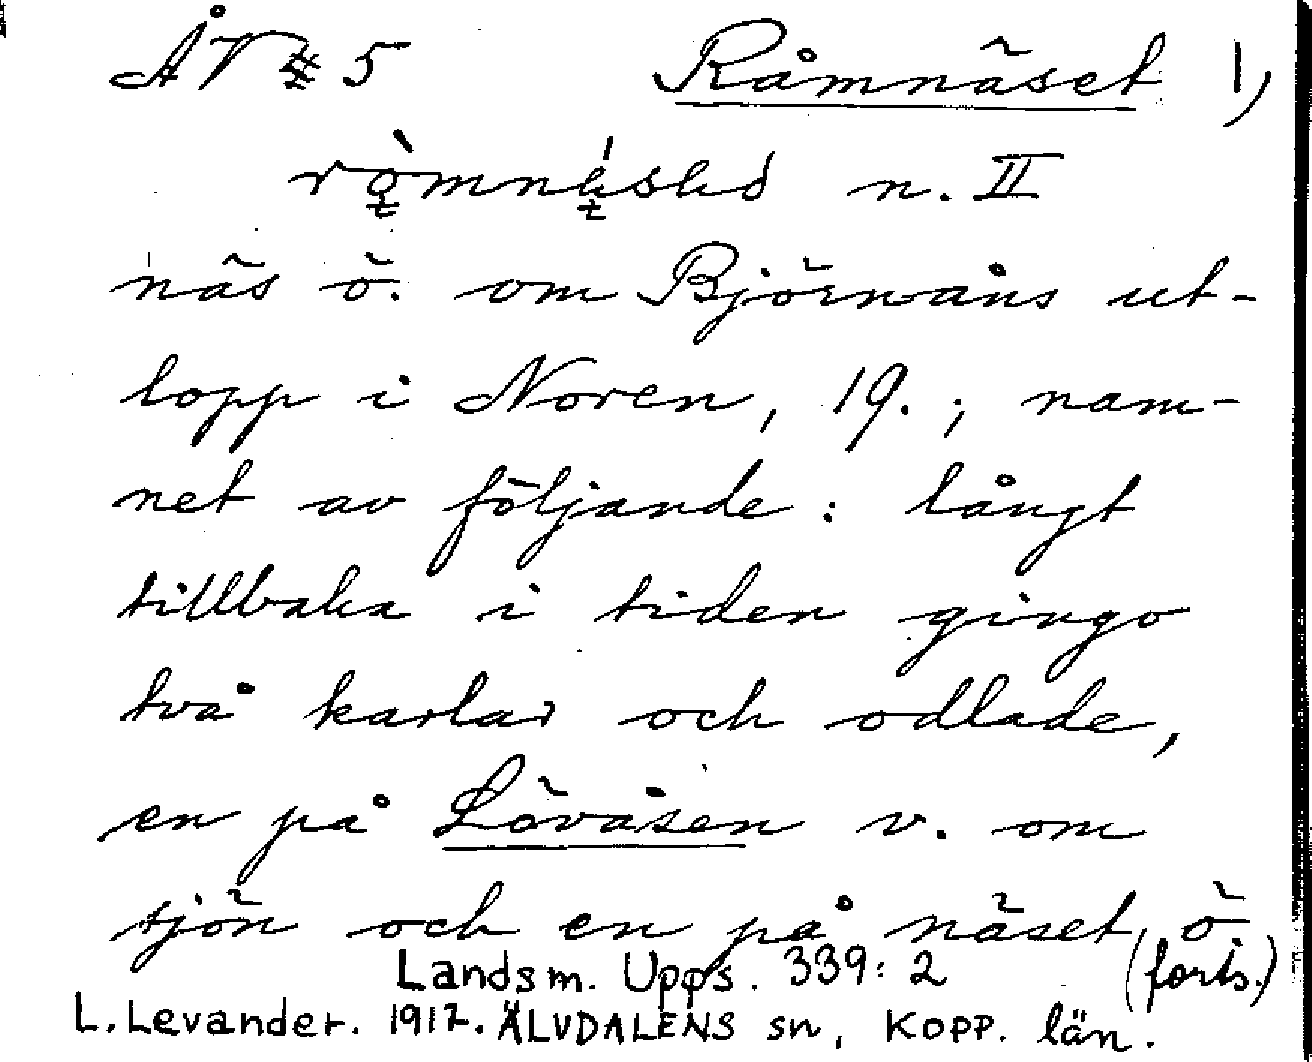 ÅV 5 Råmnäset 1)
n. II
näs ö. om Björnåns ut-
lopp i Noren, 19.; nam-
net av följande: långt
tillbaka i tiden gingo
två karlar och odlade,
en på Lövåsen v. om
sjön och en på näset ö.
(forts.)
Landsm. Upps. 339: 2
L. Levander. 1912. ÄLVDALENS sn, KOPP. län.